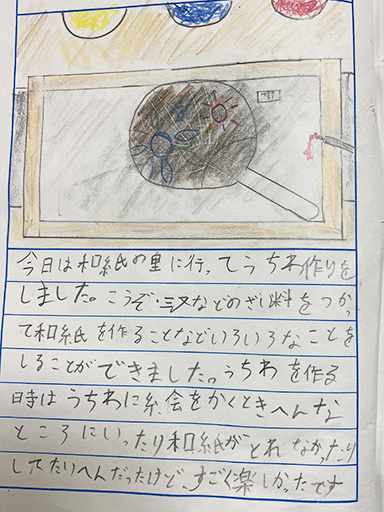 今日は和紙の里に行ってうちわ作りを
しました。こうぞ・三又などのざい料をつかっ
て和紙を作ることなどいろいろなことを
しることができました。うちわを作る
時はうちわに絵をかくときへんな
ところにいったり和紙がとれなかったり
してたいへんだったけど、すごく楽しかったです